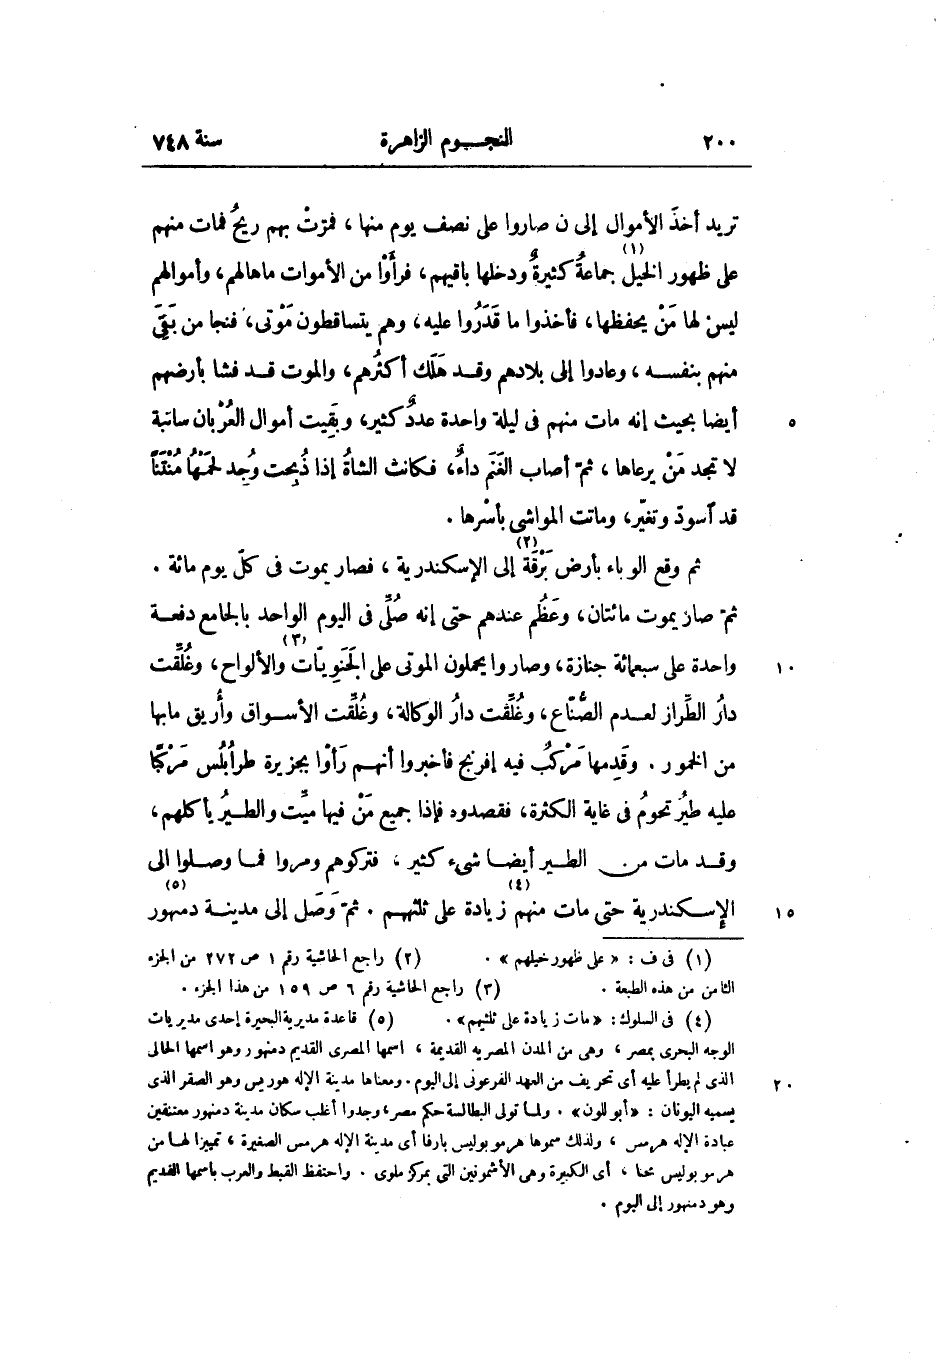 ٢٠٠ النجـــوم الزاهرة سنة ٧٤٨
تريد أخذَ الأموال إلى ن صاروا على نصف يوم منها ، فمرّتْ بهم ريحٌ فمات منهم
على ظهور الخيل (١) جماعةٌ كثيرةٌ ودخلها باقيهم، فرأَوْا من الأموات ماهالهم، وأموالهم
ليس لها مَنْ يحفظها، فأخذوا ما قَدَرُوا عليه، وهم يتساقطون مَوْتى، فنجا من بَقِىَ
منهم بنفســه ، وعادوا إلى بلادهم وقــد هَلَك أكثرُهم، والموت قــد فشا بأرضهم
أيضا بحيث إنه مات منهم فى ليلة واحدة عددٌ كثير، وبَقِيت أموال العُرْبان سائبة ٥
لا تجد مَنْ يرعاها ، ثمّ أصاب الغَنَم داءٌ، فكانت الشاةُ إذا ذُبِحت وُجِد لحمُها مُنْتنًا
قد آسودّ وتغيّر، وماتت المواشى بأسْرها .
ثم وقع الوباء بأرض بَرْقَة (٢) إلى الإسكندرية ، فصار يموت فى كلّ يوم مائة .
ثمّ صار يموت مائتان، وعَظُم عندهم حتى إنه صُلِّى فى اليوم الواحد بالجامع دفعــة
واحدة على سبعمائة جنازة، وصاروا يحملون الموتى على الجَنَوِيّات (٣) والألواح، وغُلِّقت ١٠
دارُ الطِّراز لعــدم الصُّنّاع، وغُلِّقت دارُ الوكالة، وغُلِّقت الأســواق وأُريق مابها
من الخمور . وقَدِمها مَرْكبٌ فيه إفرنج فأخبروا أنهــم رَأَوْا بجزيرة طرابُلُس مَرْكبًا
عليه طيرٌ تحومُ فى غاية الكثرة، فقصدوه فإذا جميع مَنْ فيها ميّت والطيرُ يأكلهم،
وقــد مات من الطــير أيضــا شىء كثير ، فتركوهم ومروا فمــا وصــلوا الى
الإســكندرية حتى مات منهم زيادة على ثلثيهــم (٤) . ثمّ وَصَل إلى مدينــة دمنهور (٥) ١٥
(١) فى ف : « على ظهور خيلهم » . (٢) راجع الحاشية رقم ١ ص ٢٧٢ من الجزء
الثامن من هذه الطبعة . (٣) راجع الحاشية رقم ٦ ص ١٥٩ من هذا الجزء .
(٤) فى السلوك: «مات زيادة على ثلثيهم» . (٥) قاعدة مديرية البحيرة إحدى مديريات
الوجه البحرى بمصر ، وهى من المدن المصريه القديمة ، اسمها المصرى القديم دمنهور وهو اسمها الحالى
الذى لم يطرأ عليه أى تحريف من العهد الفرعونى إلى اليوم . ومعناها مدينة الإله هوريس وهو الصقر الذى ٢٠
يسميه اليونان : «أبوللون» . ولما تولى البطالسة حكم مصر، وجدوا أغلب سكان مدينة دمنهور معتنقين
عبادة الإله هرمس ، ولذلك سموها هرموبوليس بارفا أى مدينة الإله هرمس الصغيرة ، تمييزا لها من
هرموبوليس مجنا ، أى الكبيرة وهى الأشمونين التى بمركز ملوى . واحتفظ القبط والعرب باسمها القديم
وهو دمنهور إلى اليوم .